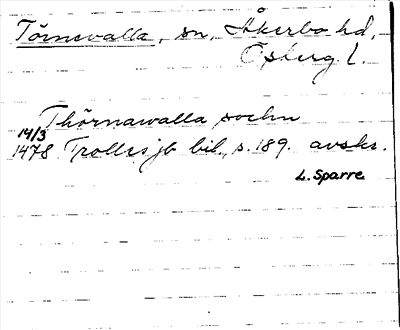 Törnevalla, sn, Åkerbo hd,
Östergl.
Thörnawalla sochn
14/3
1478 Trolles jb bil., s. 189. avskr.
L. Sparre